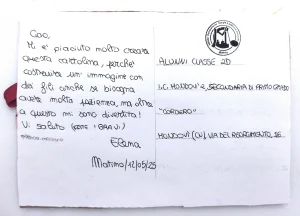 Ciao,
Mi è piaciuto molto creare
questa cartolina, perché
costruire un'immagine con
dei fili anche se bisogna
avere molta pazienza, ma oltre
a questo mi sono divertita!
Vi saluto (siete i BRAVI)
Elena
Matino/12/05/25
ALUNNI CLASSE 2D
I.C. MONDOVÌ 2, SECONDARIA DI PRIMO GRADO
"CORDERO"
MONDOVÌ (CN), VIA DEL